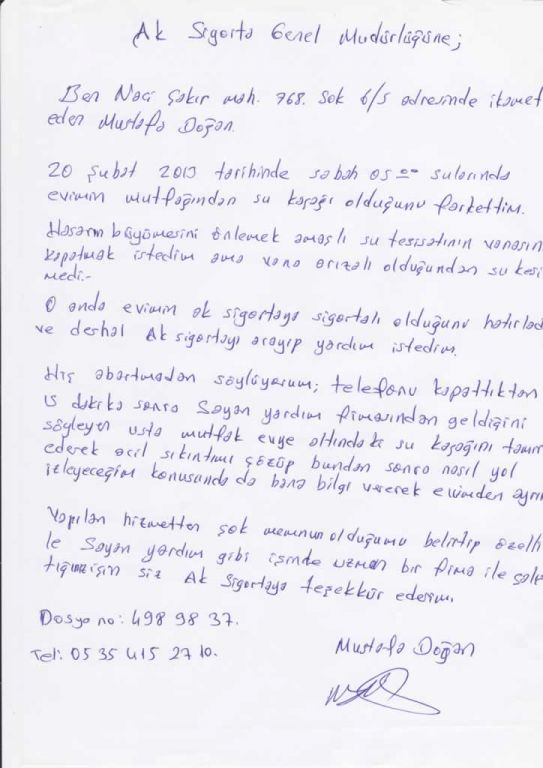 Ak Sigorta Genel Mudürlüğüne;
Ben Naci Şakir mah. 768. Sok 6/5 adresinde ikamet
eden Mustafa Doğan.
20 Şubat 2013 tarihinde sabah 05 00 sularında
evimin mutfağından su kaçağı olduğunu farkettim.
Hasarın büyümesini önlemek amaçlı su tesisatının vanasın
kapatmak istedim ama vana arızalı olduğundan su kesi
medi.-
O anda evimin ak sigortaya sigortalı olduğunu hatırlad
ve derhal Ak sigortayı arayıp yardım istedim.
Hiç abartmadan söylüyorum; telefonu kapattıktan
15 dakika sonra Sayan yardım firmasından geldiğini
söyleyen usta mutfak evye altındaki su kaçağını tamir
ederek acil sıkıntımı çözüp bundan sonra nasıl yol
izleyeceğim konusunda da bana bilgi vererek evimden ayrı
Yapılan hizmetten çok memnun olduğumu belirtip özelli
le Sayan yardım gibi işinde uzman bir firma ile çalış
tığınız için siz Ak Sigortaya teşekkür ederim.
Dosya no: 498 98 37.
Tel: 05 35 415 27 10.
Mustafa Doğan